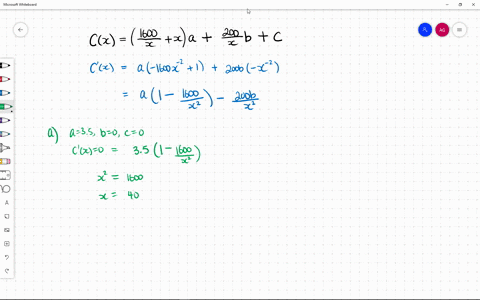 Microsoft Whiteboard
AG
C(x) = (1600/x + x)a + 200/x b + c
C'(x) = a(-1600x⁻² + 1) + 200b(-x⁻²)
= a(1 - 1600/x²) - 200b/x²
a) a=3.5, b=0, c=0
C'(x)=0 = 3.5(1 - 1600/x²)
x² = 1600
x = 40